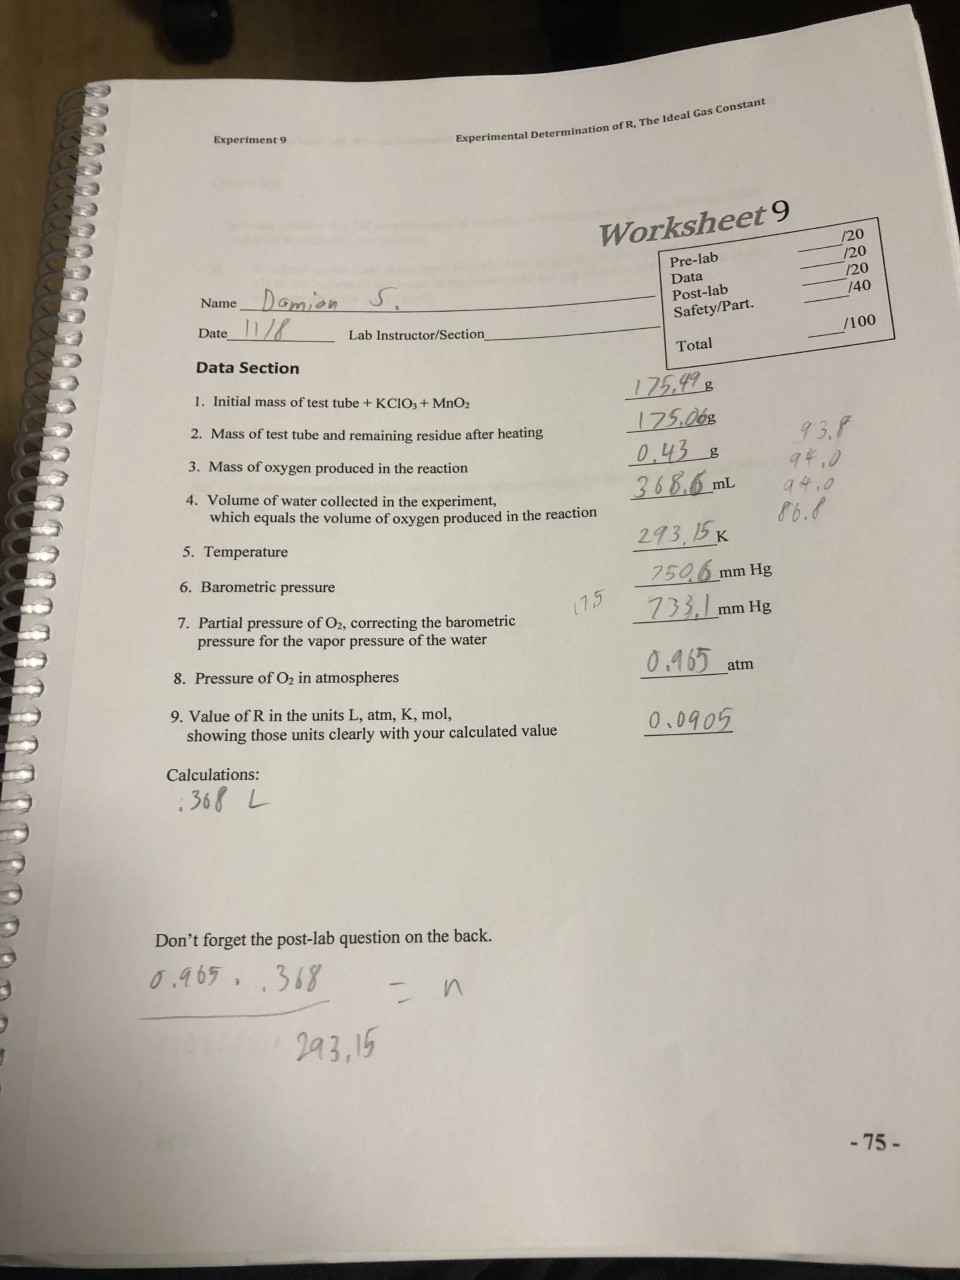 Experiment 9
Experimental Determination of R, The Ideal Gas Constant
Worksheet 9
Pre-lab /20
Data /20
Post-lab /20
Safety/Part. /40
Total /100
Name Damion S.
Date 11/8 Lab Instructor/Section
Data Section
1. Initial mass of test tube + KClO₃ + MnO₂ 175.49 g
2. Mass of test tube and remaining residue after heating 175.06g
93.8
3. Mass of oxygen produced in the reaction 0.43 g
94.0
4. Volume of water collected in the experiment, 368.6 mL
94.0
which equals the volume of oxygen produced in the reaction
86.8
5. Temperature 293.15 K
6. Barometric pressure 750.6 mm Hg
17.5
7. Partial pressure of O₂, correcting the barometric 733.1 mm Hg
pressure for the vapor pressure of the water
8. Pressure of O₂ in atmospheres 0.965 atm
9. Value of R in the units L, atm, K, mol, 0.0905
showing those units clearly with your calculated value
Calculations:
.368 L
Don't forget the post-lab question on the back.
0.965 . .368 = n
293.15
- 75 -